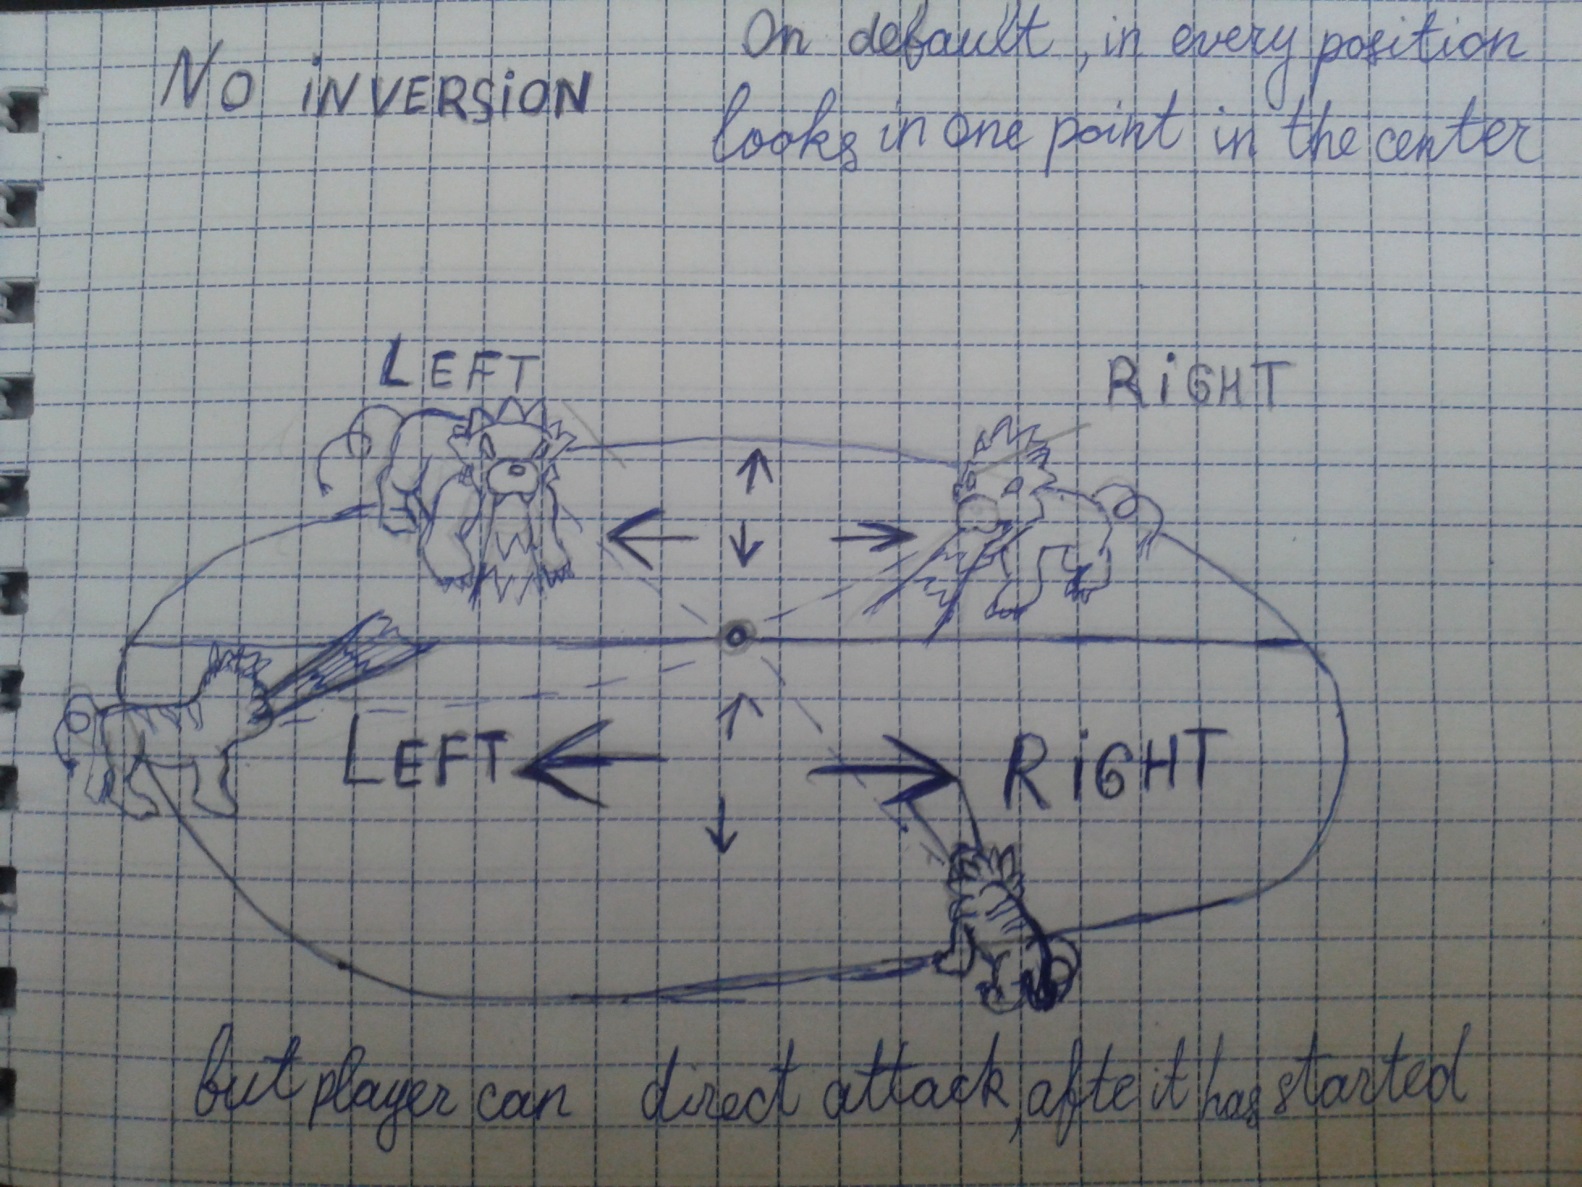 NO iNVERSiON
On default, in every position
looks in one point in the center
LEFT
RiGHT
LEFT
RiGHT
but player can direct attack, afte it has started